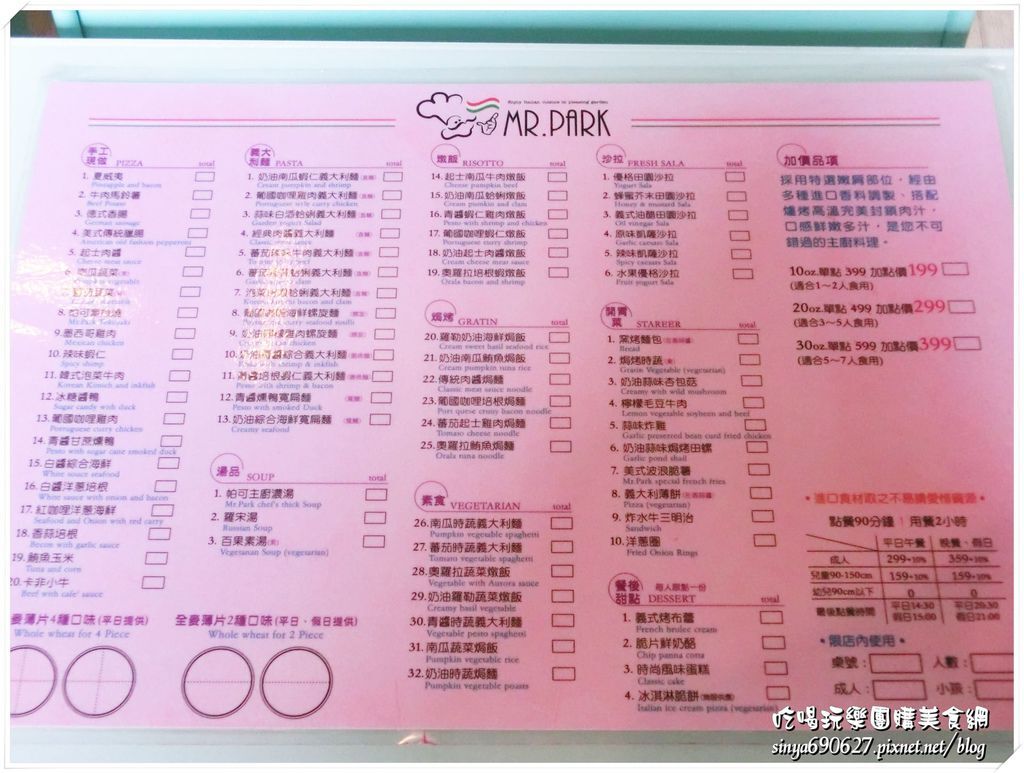 Enjoy Italian cuisine in pleasing garden
MR.PARK
手工現做 PIZZA total
1. 夏威夷
Pineapple and bacon
2. 牛肉馬鈴薯
Beef Potato
3. 德式香腸
German sausage
4. 美式傳統臘腸
American old fashion pepperoni
5. 起士肉醬
Cheese meat sauce
6. 南瓜蔬菜(素)
8. 帕可章魚燒
Mr.Park Takoyaki
9. 墨西哥雞肉
Mexican chicken
10. 辣味蝦仁
Spicy shrimp
11. 韓式泡菜牛肉
Korean Kimuch and inkfish
12. 冰糖醬鴨
Sugar candy with duck
13. 葡國咖哩雞肉
Portuguese curry chicken
14. 青醬甘蔗燻鴨
Pesto with sugar cane smoked duck
15. 白醬綜合海鮮
White sauce seafood
16. 白醬洋蔥培根
White sauce with onion and bacon
17. 紅咖哩洋蔥海鮮
Seafood and Onion with red carry
18. 香蒜培根
Becon with garlic sauce
19. 鮪魚玉米
Tuna and corn
20. 卡非小牛
Beef with cafe' sauce
麥薄片4種口味(平日提供)
Whole wheat for 4 Piece
全麥薄片2種口味(平日、假日提供)
Whole wheat for 2 Piece
義大利麵 PASTA total
1. 奶油南瓜蝦仁義大利麵
Cream pumpkin and shrimp
2. 葡國咖哩雞肉義大利麵
Portuguese with curry chicken
3. 蒜味白酒蛤蜊義大利麵
4. 經典肉醬義大利麵
8. 海鮮螺旋麵
10. 奶油青醬綜合義大利麵
11. 青醬培根蝦仁義大利麵
Pesto with shrimp & bacon
12. 青醬燻鴨寬扁麵
Pesto with smoked Duck
13. 奶油綜合海鮮寬扁麵
Creamy seafood
湯品 SOUP total
1. 帕可主廚濃湯
Mr.Park chef's thick Soup
2. 羅宋湯
Russian Soup
3. 百果素湯(素)
Vegetarian Soup (vegetarian)
燉飯 RISOTTO total
14. 起士南瓜牛肉燉飯
Cheese pumpkin beef
15. 奶油南瓜蛤蜊燉飯
Cream pumkin and clam
16. 青醬蝦仁雞肉燉飯
Pesto with shrimp and chicken
17. 葡國咖哩蝦仁燉飯
Portuguese curry shrimp
18. 奶油起士肉醬燉飯
Cream cheese meat sauce
19. 奧羅拉培根蝦燉飯
Orala bacon and shrimp
焗烤 GRATIN total
20. 羅勒奶油海鮮焗飯
Cream sweet basil seafood rice
21. 奶油南瓜鮪魚焗飯
Cream pumpkin tuna rice
22. 傳統肉醬焗麵
Classic meat sauce noodle
23. 葡國咖哩培根焗麵
Port quese cruny bacon noodle
24. 蕃茄起士雞肉焗麵
Tomato cheese noodle
25. 奧羅拉鮪魚焗麵
Orala tuna noodle
素食 VEGETARIAN total
26. 南瓜時蔬義大利麵
Pumpkin vegetable spaghetti
27. 蕃茄時蔬義大利麵
Tomato vegetable spaghetti
28. 奧羅拉蔬菜燉飯
Vegetable with Aurora sauce
29. 奶油羅勒蔬菜燉飯
Creamy basil vegetable
30. 青醬時蔬義大利麵
Vegetable pesto spaghetti
31. 南瓜蔬菜焗飯
Pumpkin vegetable rice
32. 奶油時蔬焗麵
Pumpkin vegetable poasts
沙拉 FRESH SALA total
1. 優格田園沙拉
Yogurt Sala
2. 蜂蜜芥末田園沙拉
Honey & mustard Sala
3. 義式油醋田園沙拉
Oil vinegar Sala
4. 原味凱薩沙拉
Garlic caesars Sala
5. 辣味凱薩沙拉
Spicy caesars Sala
6. 水果優格沙拉
Fruit yogurt Sala
開胃菜 STAREER total
1. 窯烤麵包
Bread
2. 焗烤時蔬(素)
Gratin Vegetable (vegetarian)
3. 奶油蒜味杏包菇
Creamy with wild mushroom
4. 檸檬毛豆牛肉
Lemon vegetable soybeen and beef
5. 蒜味炸雞
Garlic preserved bean curd fried chicken
6. 奶油蒜味焗烤田螺
Garlic pond shail
7. 美式波浪脆薯
Mr.Park special french fries
8. 義大利薄餅
Pizza (vegetarian)
9. 炸水牛三明治
Sandwich
10. 洋蔥圈
Fried Onion Rings
餐後甜點 每人限點一份
DESSERT total
1. 義式烤布蕾
French brulee cream
2. 脆片鮮奶酪
Chip panna cotta
3. 時尚風味蛋糕
Classic cake
4. 冰淇淋脆餅
Italian ice cream pizza (vegetarian)
加價品項
採用特選嫩肩部位，經由
多種進口香料調製、搭配
爐烤高溫完美封鎖肉汁，
口感鮮嫩多汁，是您不可
錯過的主廚料理。
10oz.單點 399 加點價199
(適合1～2人食用)
20oz.單點 499 加點價299
(適合3～5人食用)
30oz.單點 599 加點價399
(適合5～7人食用)
• 進口食材取之不易請愛惜資源 •
點餐90分鐘！用餐2小時
平日午餐 晚餐、假日
成人 299+10% 359+10%
兒童90-150cm 159+10% 159+10%
幼兒90cm以下 0 0
最後點餐時間 平日14:30 假日15:00 平日20:30 假日21:00
• 限店內使用 •
桌號： 人數：
成人： 小孩：
吃喝玩樂團購美食網
sinya690627.pixnet.net/blog